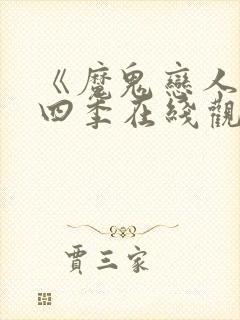 《魔鬼戀人
四季在綫觀
賈三家